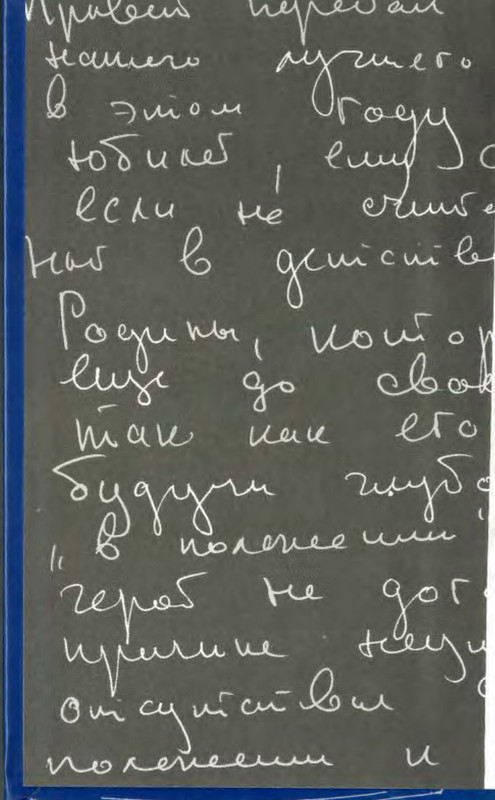 Привет передал
нашего лучшего
в этом году
юбилей, ему
если не счит
ной в детстве
Родины, котор
еще до сво
так как его
будучи глубо
"в положении"
герой не дог
причине неу
отсутствия
положении и